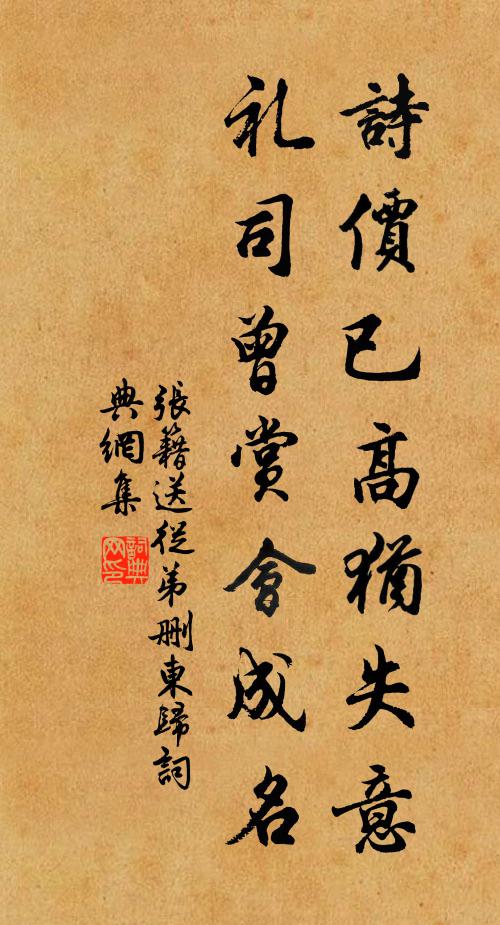 詩價已高猶失意
礼司曾賞會成名
張籍送從弟删東歸詞
典網集
詞典
网印